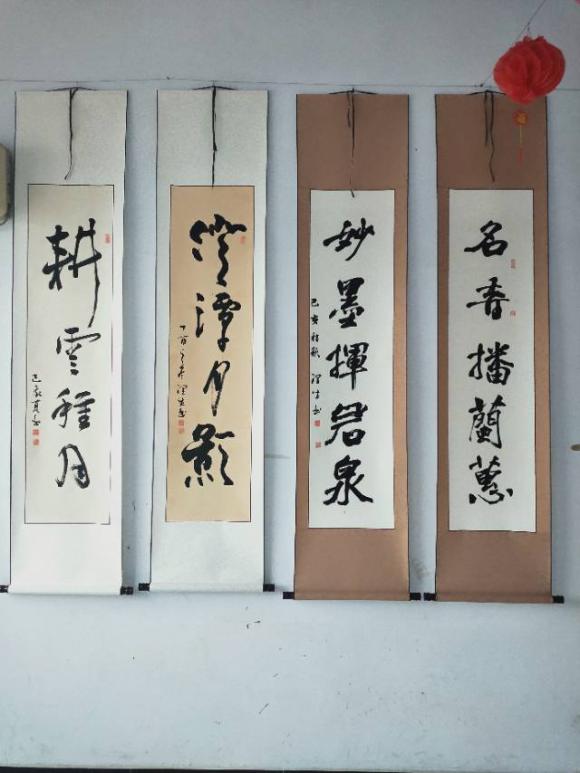 名香播蘭蕙
妙墨揮岩泉
己亥初秋
澄潭月影
丁酉之春
耕雲種月
己亥夏